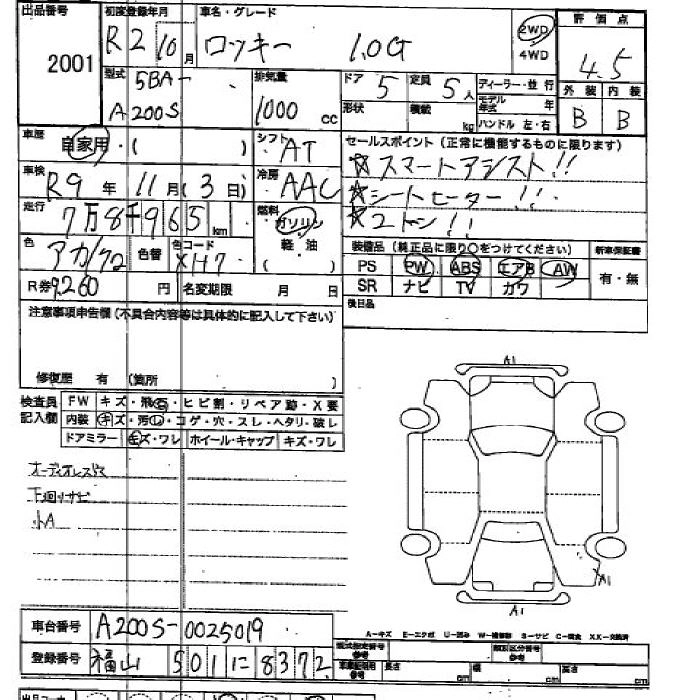 出品番号 2001
初度登録年月 R2 10月
車名・グレード ロッキー 1.0G
2WD
4WD
評価点 4.5
型式 5BA-
A200S
排気量 1000 cc
ドア 5 定員 5人
形状 積載 kg
ディーラー・並行
モデル年式 年
ハンドル 左・右
外装 内装
B B
車歴 自家用・( )
シフト AT
セールスポイント(正常に機能するものに限ります)
☆スマートアシスト!!
☆シートヒーター!!
☆2トン!!
車検 R9年 11月(3日)
冷房 AAC
走行 7万8千965km
燃料 ガソリン
軽油
( )
色 アカ/クロ 色替 色コード XH7
装備品(純正品に限り○をつけてください) 新車保証書
PS PW ABS エアB AW
SR ナビ TV カワ
有・無
R券 9,260円 名変期限 月 日
後日品
注意事項申告欄(不具合内容等は具体的に記入して下さい)
修復歴 有 (箇所 )
検査員記入欄
FW キズ・飛石・ヒビ割・リペア跡・X要
内装 キズ・汚レ・コゲ・穴・スレ・ヘタリ・破レ
ドアミラー キズ・ワレ ホイール・キャップ キズ・ワレ
オーディオレス
下廻りサビ
小A
A1
A1
A1
車台番号 A200S-0025019
登録番号 福山 501 に 8372
A-キズ E-エクボ U-凹み W-補修跡 S-サビ C-腐食 XX-交換済
型式指定番号 参考
類別区分番号 参考
長さ cm 幅 cm 高さ cm